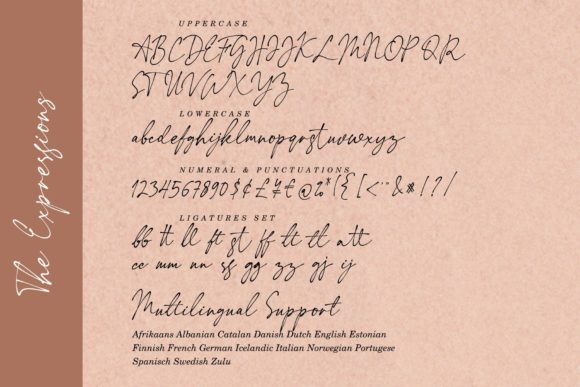 The Expressions
UPPERCASE
ABCDEFGHIJKLMNOPQR
STUVWXYZ
LOWERCASE
abcdefghijklmnopqrstuvwxyz
NUMERAL & PUNCTUATIONS
1234567890$¢£¥€@%*({[<¨&*!?/
LIGATURES SET
bb tt ll ft st ff lt tt att
cc mm nn sf gg zz gj ij
Multilingual Support
Afrikaans Albanian Catalan Danish Dutch English Estonian
Finnish French German Icelandic Italian Norwegian Portugese
Spanisch Swedish Zulu